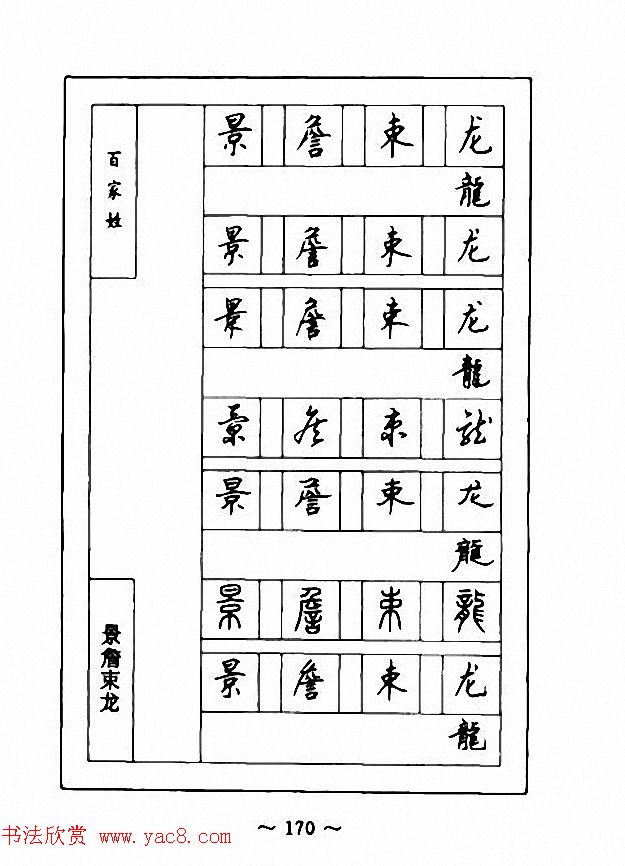 百家姓
景 詹 束 龙
龍
景 詹 束 龙
景 詹 束 龙
龍
景 詹 束 龍
景 詹 束 龙
龍
景 詹 束 龍
景 詹 束 龙
龍
景詹束龙
~ 170 ~
书法欣赏 www.yac8.com